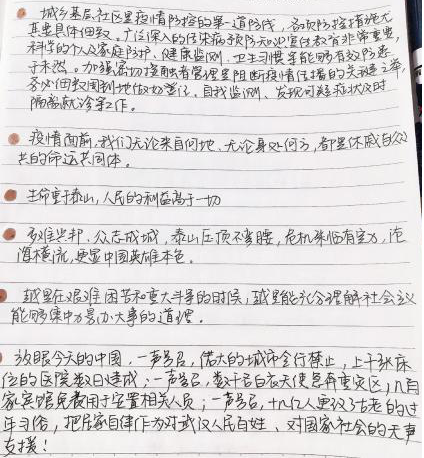 城乡基层社区是疫情防控的第一道防线，各项防控措施尤
其要具体细致。广泛深入的传染病预防知识宣传教育非常重要，
科学的个人及家庭防护、健康监测、卫生习惯等能够有效防患
于未然。加强密切接触者管理是阻断疫情传播的关键之举，
务必细致周到地做好登记、自我监测、发现可疑症状及时
隔离就诊等工作。
疫情面前，我们无论来自何地、无论身处何方，都是休戚与
共的命运共同体。
生命重于泰山，人民的利益高于一切
多难兴邦、众志成城，泰山压顶不弯腰，危机来临有定力，沧
海横流，更显中国英雄本色。
越是在艰难困苦和重大斗争的时候，越是能充分理解社会主义
能够集中力量办大事的道理。
放眼今天的中国，一声号召，偌大的城市令行禁止，上千张床
位的医院数日建成；一声号召，数千名白衣天使急奔重灾区，几百
家宾馆免费用于安置相关人员；一声号召，十几亿人更改了古老的过
年习俗，把居家自律作为对武汉人民百姓、对国家社会的无声
支援！